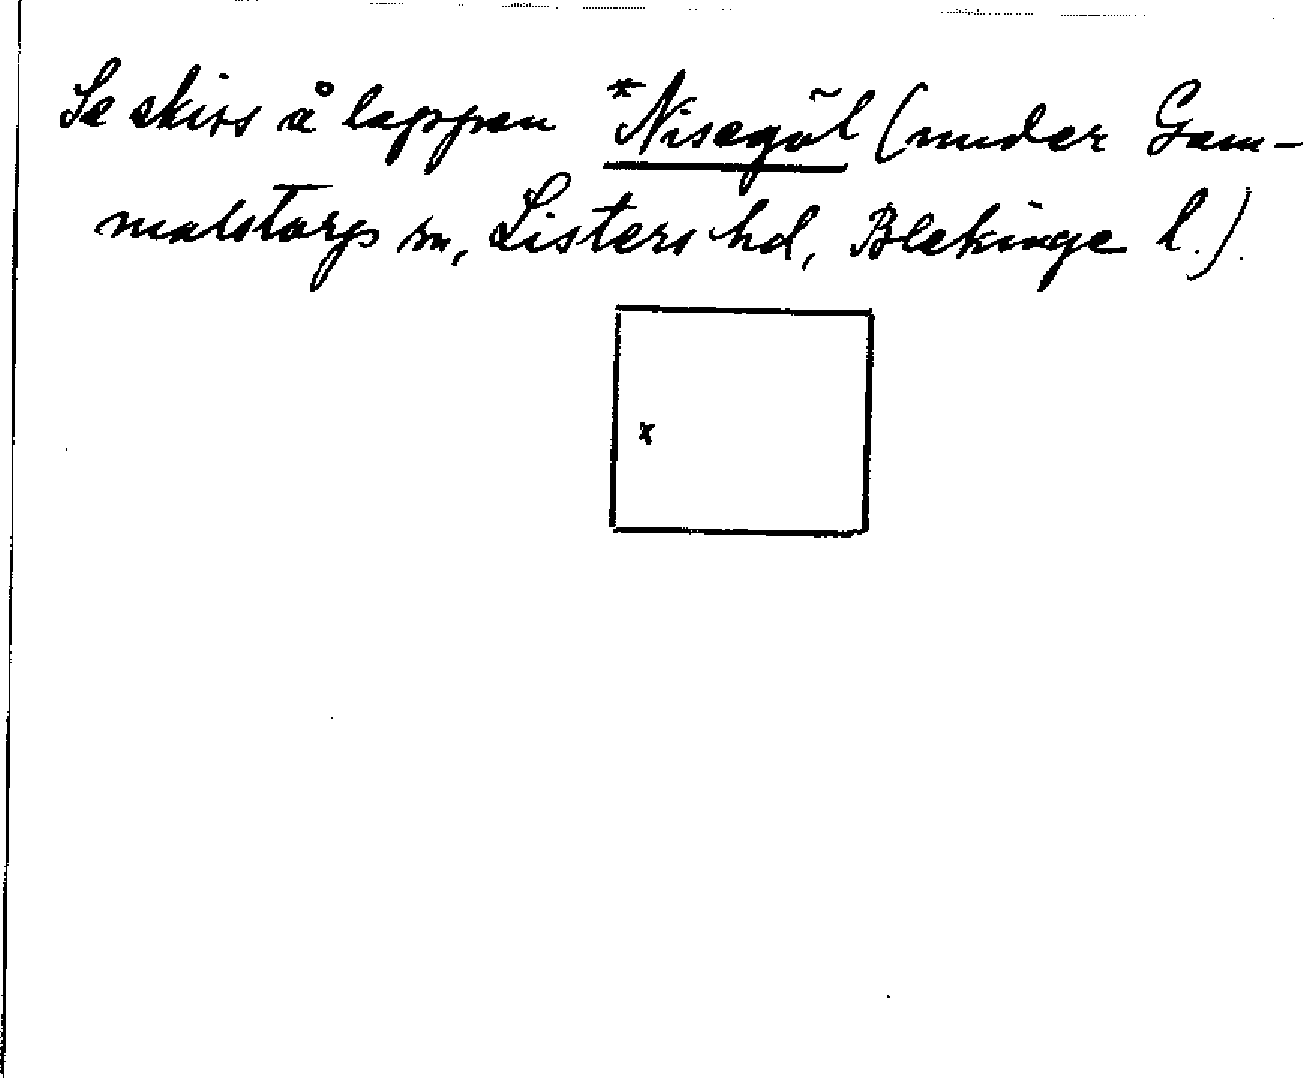 Se skiss å lappen *Nisegöl (under Gam-
malstorps sn, Listers hd, Blekinge l.).
x